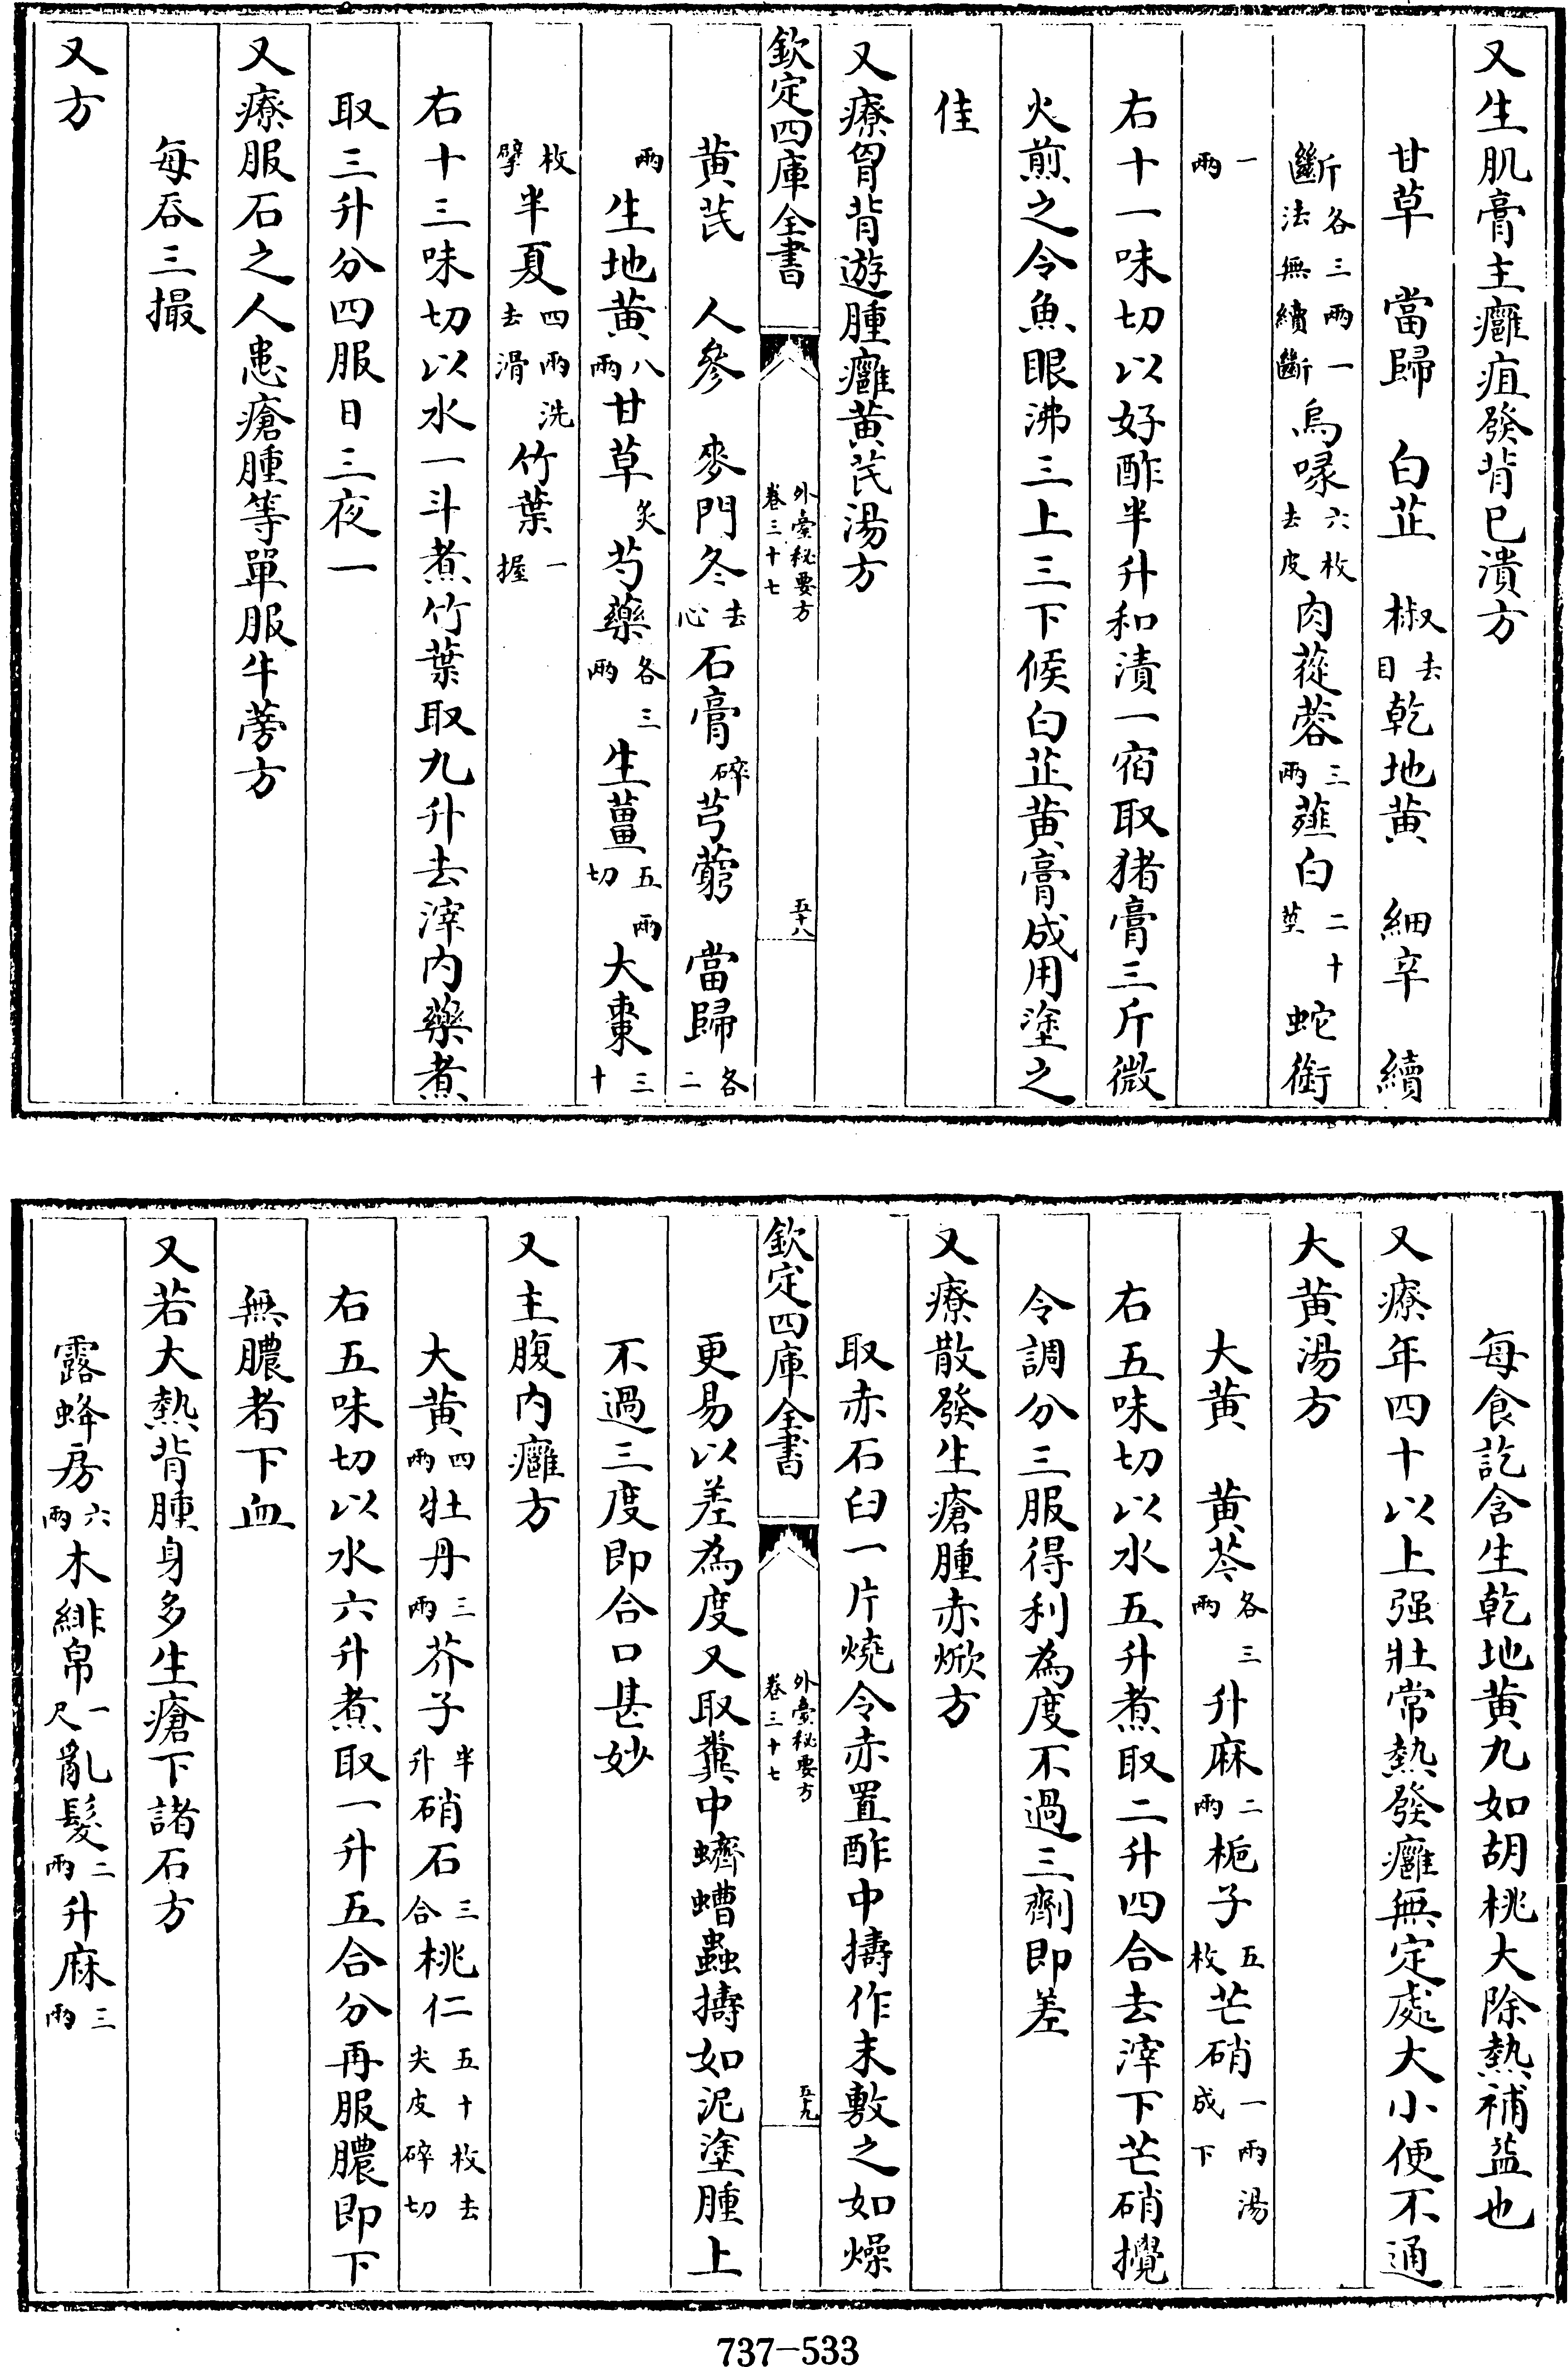 又生肌膏主癰疽發背已潰方
甘草　當歸　白芷　椒去目乾地黃　細辛　續
斷各三兩一法無續斷烏喙六枚去皮肉蓯蓉三兩薤白二十莖蛇銜
一兩
右十一味切以好酢半升和漬一宿取猪膏三斤微
火煎之令魚眼沸三上三下候白芷黃膏成用塗之
佳
又療胷背遊腫癰黃芪湯方
欽定四庫全書
外臺秘要方
卷三十七
五十八
黃芪　人參　麥門冬去心石膏碎芎藭　當歸各二
兩生地黃八兩甘草炙芍藥各三兩生薑五兩切大棗三十
枚擘半夏四兩洗去滑竹葉一握
右十三味切以水一斗煮竹葉取九升去滓內藥煮
取三升分四服日三夜一
又療服石之人患瘡腫等單服牛蒡方
每吞三撮
又方
每食訖含生乾地黃九如胡桃大除熱補益也
又療年四十以上强壯常熱發癰無定處大小便不通
大黃湯方
大黃　黃芩各三兩升麻二兩梔子五枚芒硝一兩湯成下
右五味切以水五升煮取二升四合去滓下芒硝攪
令調分三服得利為度不過三劑即差
又療散發生瘡腫赤焮方
取赤石臼一片燒令赤置酢中擣作末敷之如燥
欽定四庫全書
外臺秘要方
卷三十七
五十九
更易以差為度又取糞中蠐螬蟲擣如泥塗腫上
不過三度即合口甚妙
又主腹內癰方
大黃四兩牡丹三兩芥子半升硝石三合桃仁五十枚去尖皮碎切
右五味切以水六升煮取一升五合分再服膿即下
無膿者下血
又若大熱背腫身多生瘡下諸石方
露蜂房六兩木緋帛一尺亂髮二兩升麻三兩
737-533